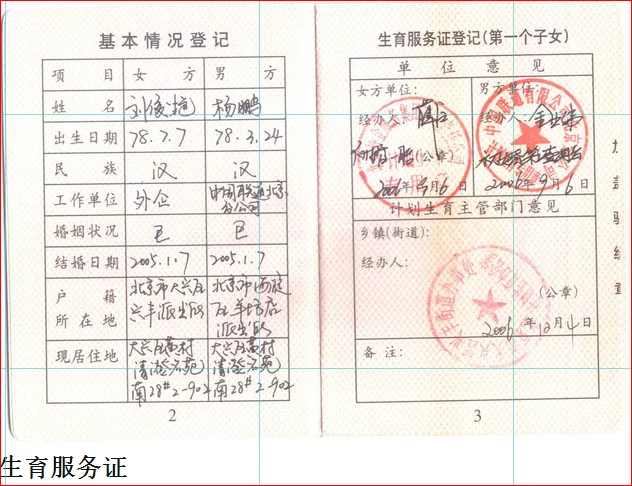 基本情况登记
项目 女方 男方
姓名 刘俊艳 杨鹏
出生日期 78.7.7 78.3.24
民族 汉 汉
工作单位 外企 中国联通北京分公司
婚姻状况 已 已
结婚日期 2005.1.7 2005.1.7
户籍所在地 北京市大兴区兴丰派出所 北京市海淀区羊坊店派出所
现居住地 大兴区黄村清澄名苑南28#2-902 大兴区黄村清澄名苑南28#2-902
2
生育服务证登记(第一个子女)
单位意见
女方单位: 男方单位:
经办人: 经办人:
(公章)
2006年9月6日 2006年9月6日
计划生育主管部门意见
乡镇(街道):
经办人:
(公章)
2006年12月4日
备注:
3
生育服务证